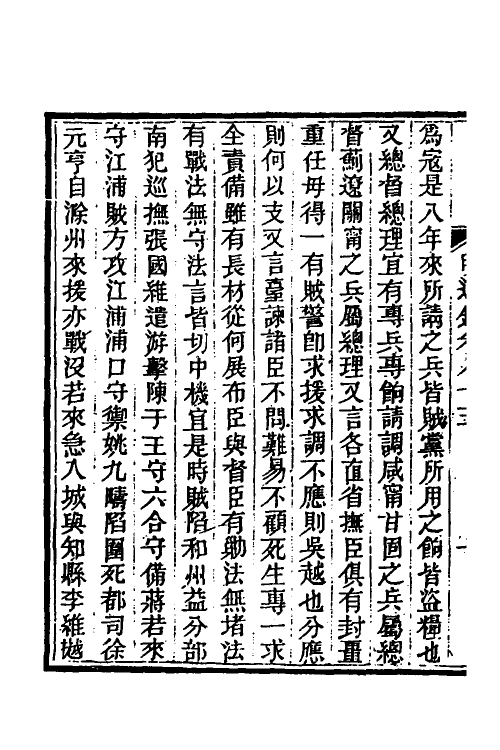 爲寇是八年來所講之兵皆賊黨所用之餉皆盜糧也
又總督總理宜有專兵專餉請調咸甯甘固之兵屬總
督薊遼關甯之兵屬總理又言各直省撫臣俱有封疆
重任毋得一有賊警卽求援求調不應則吳越也分應
則何以支又言臺諫諸臣不問難易不顧死生專一求
全責備雖有長材從何展布臣與督臣有勦法無堵法
有戰法無守法言皆切中機宜是時賊陷和州益分部
南犯巡撫張國維遣游擊陳于王守六合守備蔣若來
守江浦賊方攻江浦浦口守禦姚九疇陷圍死都司徐
元亨自滁州來援亦戰沒若來急入城與知縣李維樾